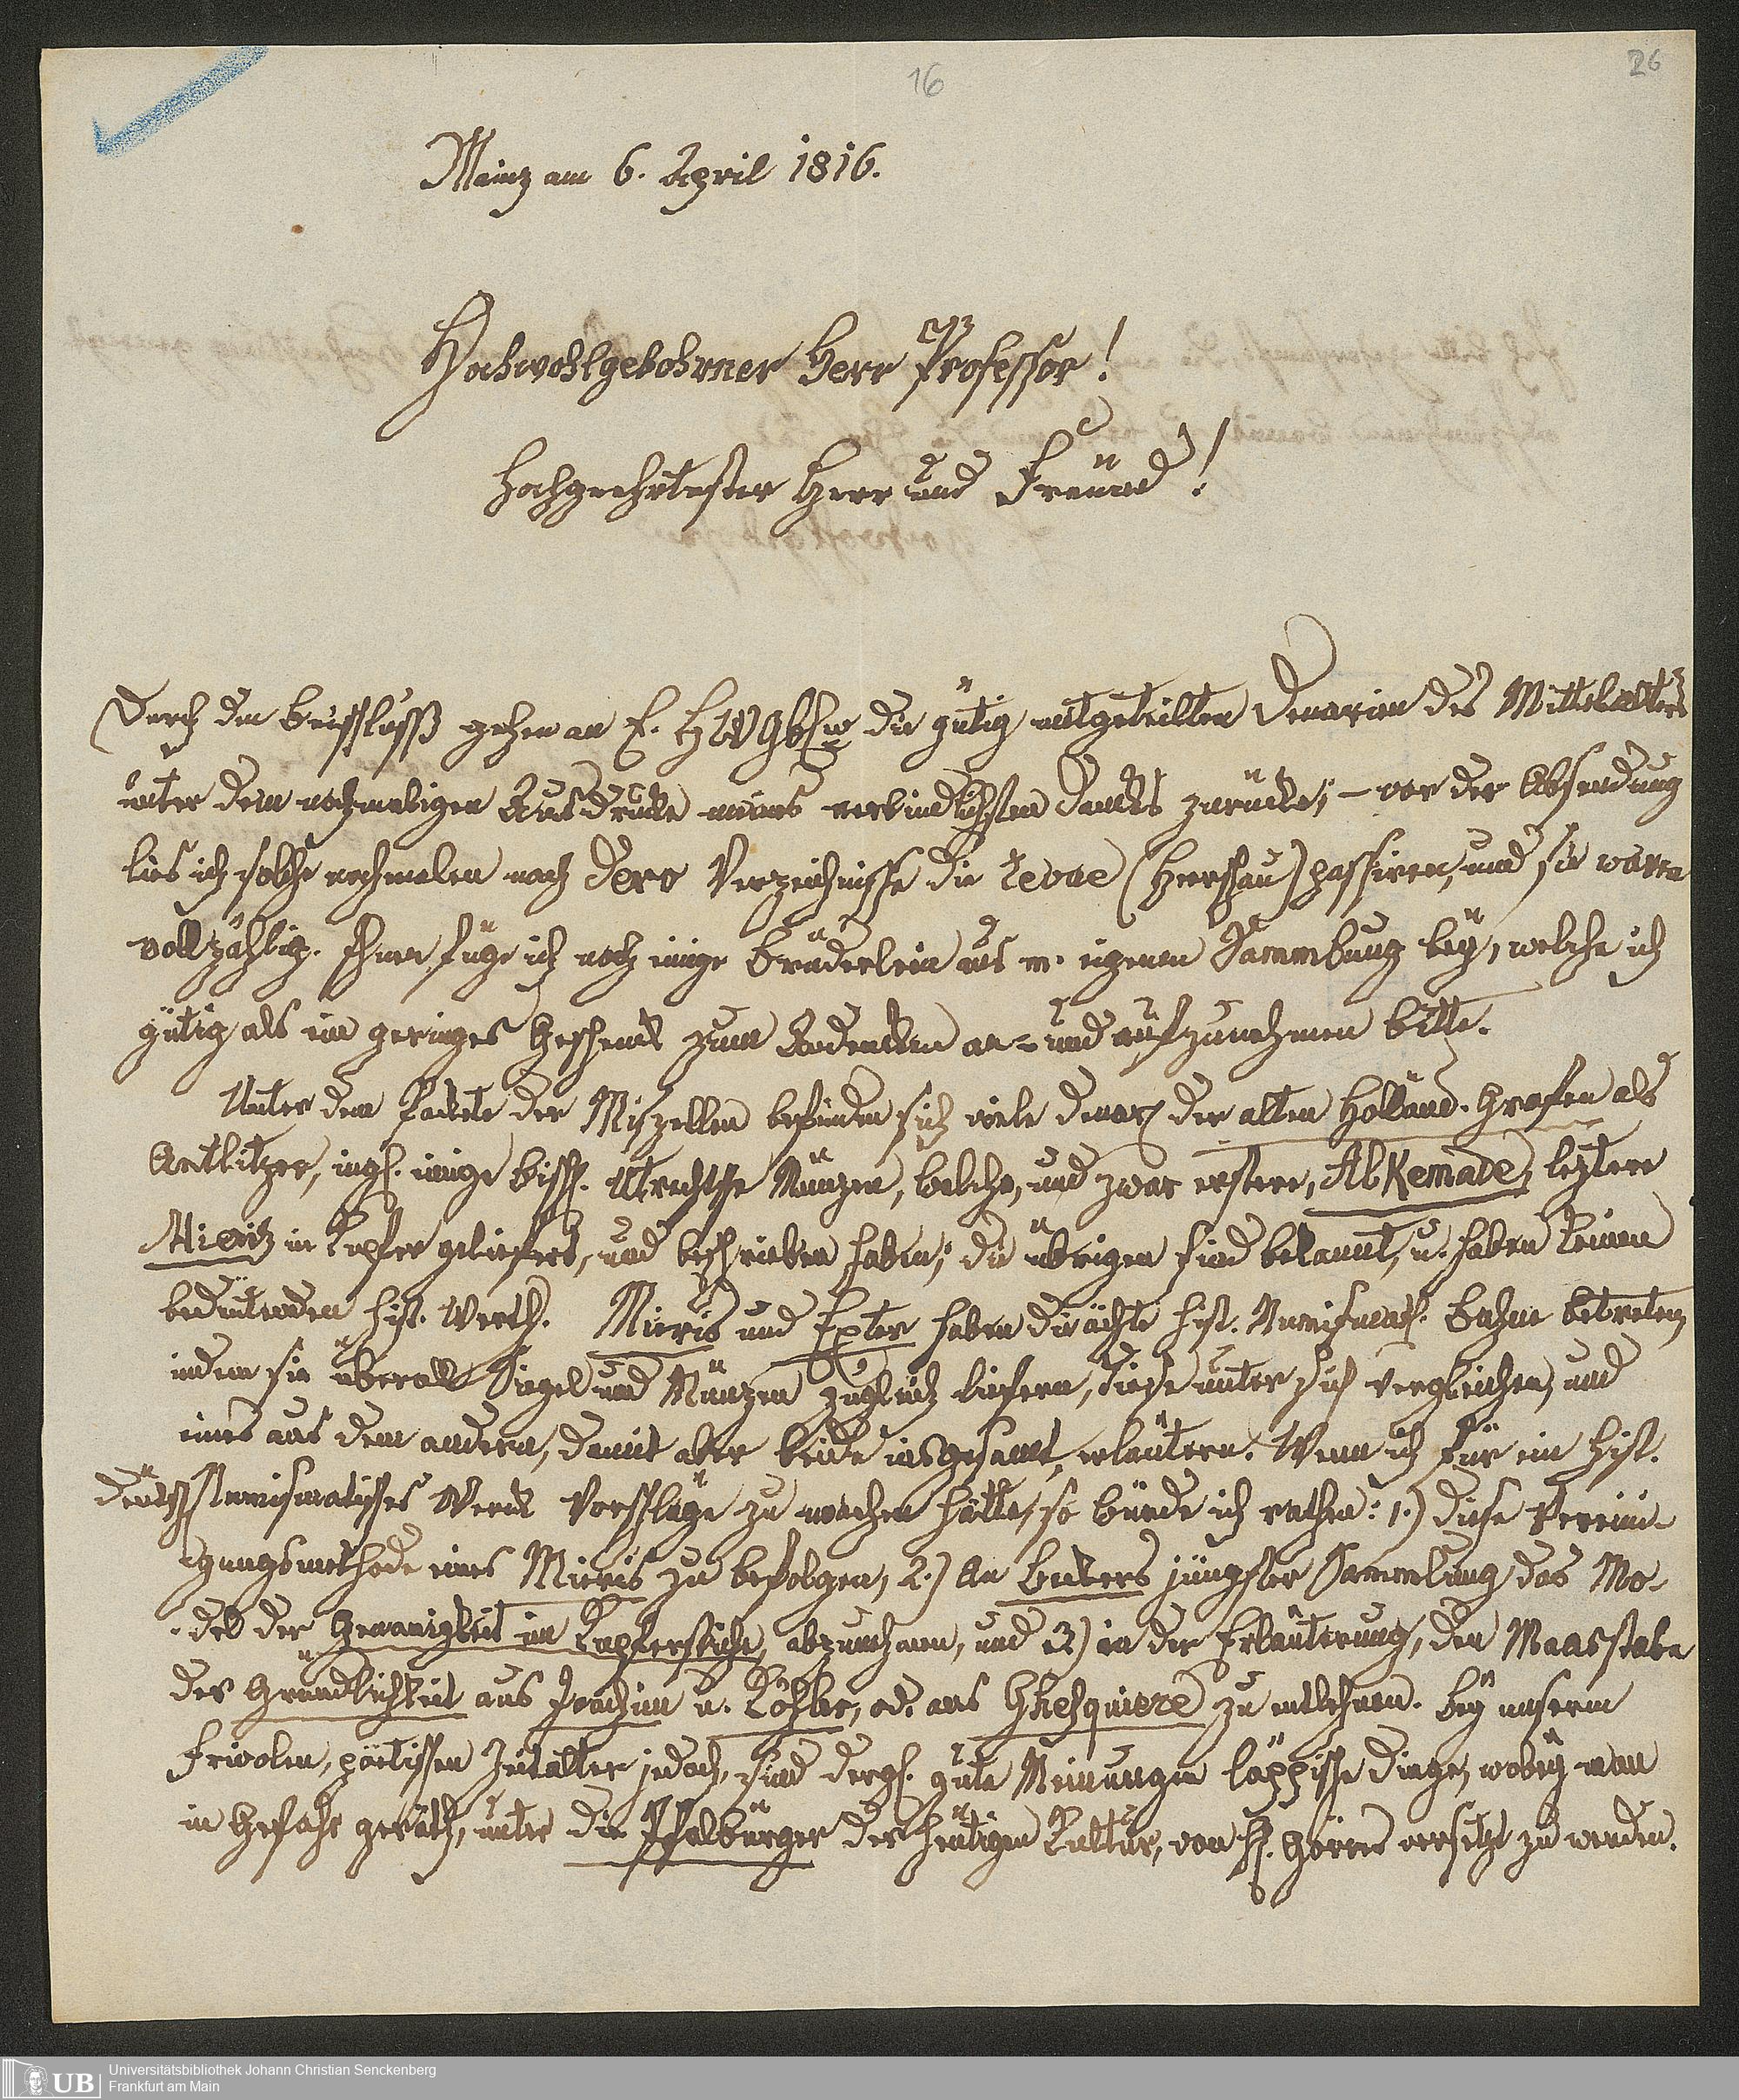 16
26
Mainz am 6. April 1816.
Hochwohlgebohrner Herr Professor!
Hochgeehrtester Herr und Freünd!
Durch den Beischluß gehen an E. die gütig mitgeteilten Denarien des Mittelalters
unter dem nochmaligen Ausdrucke meines verbindlichsten Danks zurücke; – vor der Absendung
lies ich solche nochmalen nach dero Verzeichnisse die revue (Heerschau) passiren, und sie waren
vollzählig. Ihnen füge ich noch einige Brüderlein aus m. eigenen Sammlung bey, welche ich
gütig als ein geringes Geschenk zum Andenken an- und aufzunehmen bitte.
Unter dem Packete der Miszellen befinden sich viele denar. der alten Holländ. Grafen als
Antlitzer, ingl. einige bisch. Utrechtsche Münzen, welche, und zwar erstere, Alkemade, leztere
Mieritz in Kupfer geliefert, und beschrieben haben; die übrigen sind bekannt, u. haben keinen
bedeutenden hist. Werth. Mieris und Exter haben die ächte hist. Numismat. Bahne betreten,
indem sie überall Siegel und Münzen zugleich liefern, diese unter sich vergleichen, und
eines aus dem andern, damit aber beide insgesamt erläutern. Wenn ich für ein hist.
deütsch Numismatisches Werck Vorschläge zu machen hätte, so würde ich rathen: 1.) diese Verein-
igungsmethode eines Mieris zu befolgen, 2.) An Beckers jüngster Sammlung das Mo-
del der Genauigkeit im Kupferstiche, abzunehmen, und 3) in der Erläuterung, den Maasstabe
der Gründlichkeit aus Joachim u. Köhler, od. aus Ghesquiere zu entlehnen. Bey unserm
frivolen, poëtischen Zeitalter jedoch, sind dergl. gute Meinungen läppische Dinge, wobey man
in Gefahr geräth, unter die Pfalbürger der heütigen Kultur, von H. Görres versetzt zu werden.
UB
Universitätsbibliothek Johann Christian Senckenberg
Frankfurt am Main